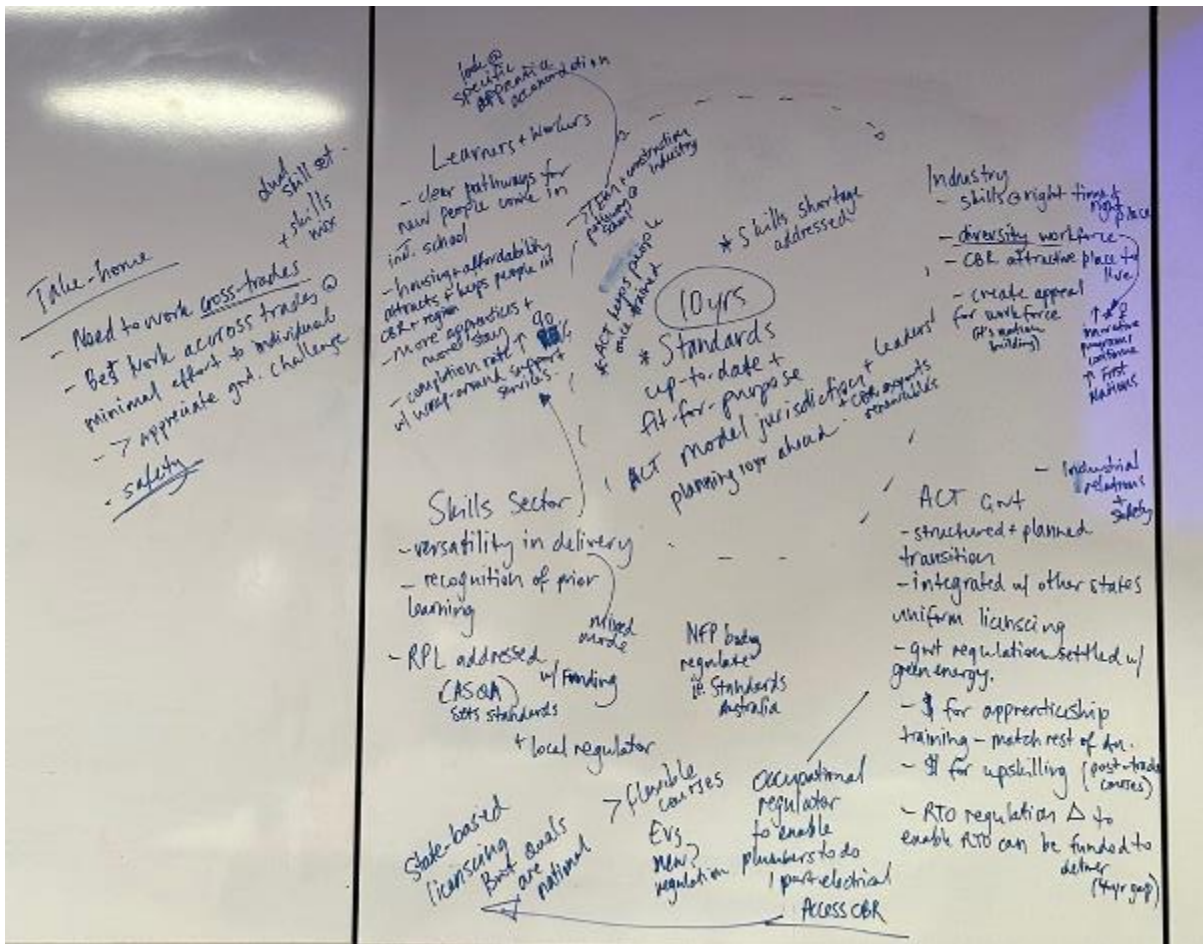 dual
skill set -
+ skills
mix
Take-home
- Need to work cross-trades
- Best work accross trades @
minimal effort to individual
- > appreciate gov. challenge
- safety
look @
specific
apprentice
accomodation
Learners + Workers
- clear pathways for
new people come in
incl. school
- housing + affordability
attracts + keeps people in
CBR + region
- more apprentices +
more stay
- completion rate ↑ 90
w/ wrap-around support
services -
construction
industry
pathway @
school
* ACT keeps people
once trained
* Skills shortage
addressed
10 yrs
* Standards
up-to-date +
fit-for-purpose
ACT model jurisdiction + leaders!
planning 10yr ahead -
+ CBR exports
renewables
Industry
- skills @ right time &
right place
- diversity workforce
- CBR attractive place to
live
- create appeal
for workforce
(it's nation
building)
narrative
programs
↑ First
Nations
- Industrial
relations
+
safety
Skills Sector
- versatility in delivery
- recognition of prior
learning
mixed
mode
- RPL addressed
w/ Funding
(ASQA)
sets standards
+ local regulator
NFP body
regulate
ie. Standards
Australia
ACT Gvt
- structured + planned
transition
- integrated w/ other states
uniform licenscing
- gvt regulation settled w/
green energy.
- $ for apprenticeship
training - match rest of
- $ for upskilling (post-trade
courses)
- RTO regulation Δ to
enable RTO can be funded to
deliver
(4yr gap)
State-based
licenscing
But quals
are
national
> flexible
courses
EVs
new?
regulation
Occupational
regulator
to enable
plumbers to do
1 part electrical
Access CBR